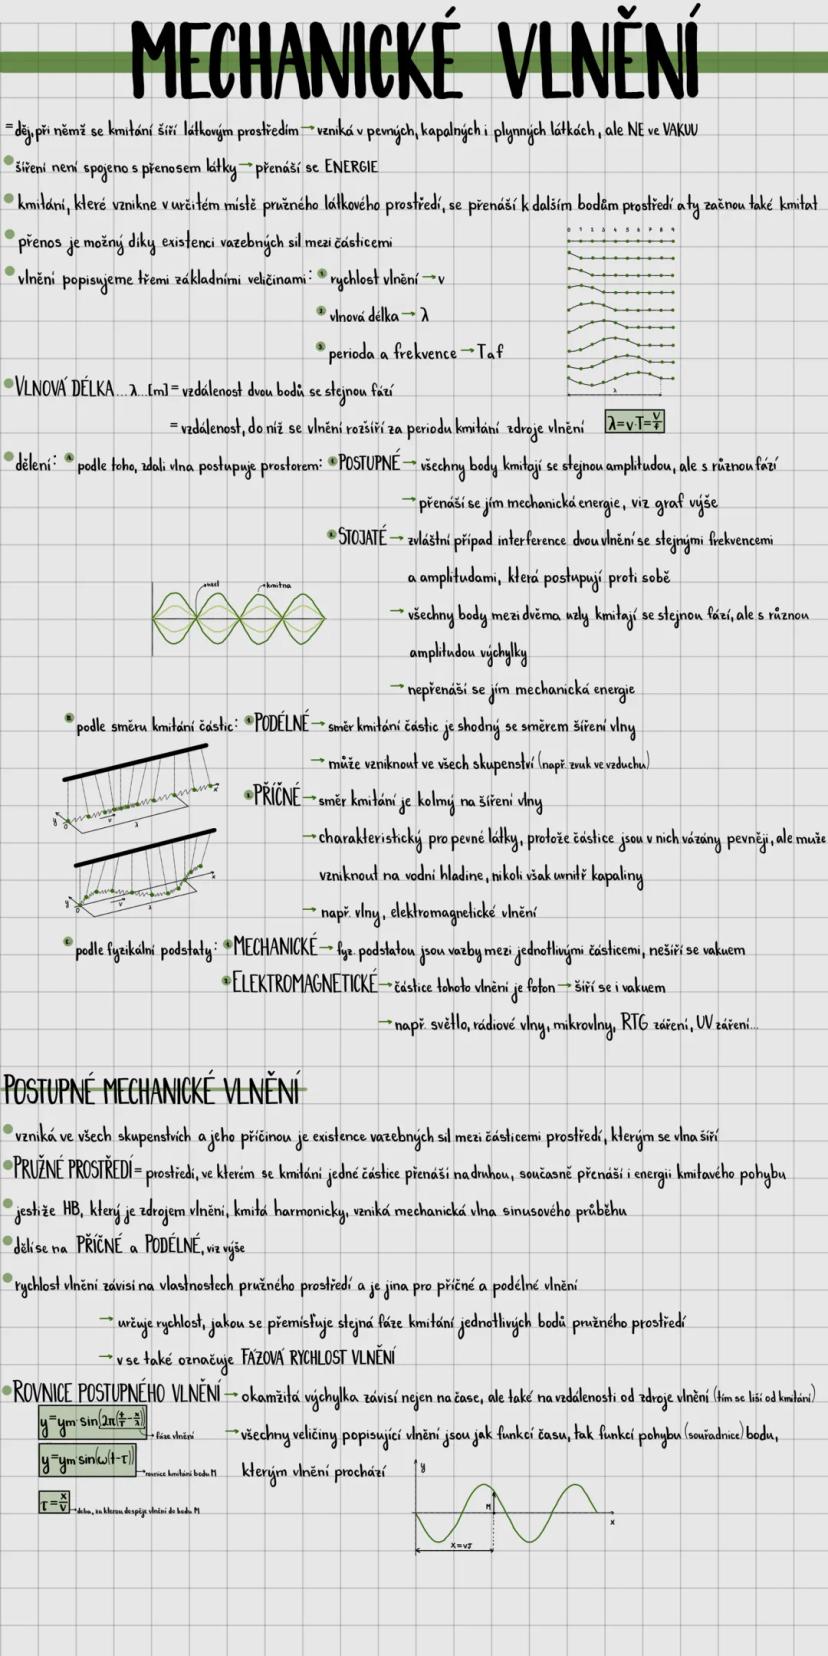 MECHANICKÉ VLNĚNÍ
= děj, při němž se kmitání šíří látkovým prostředím → vzniká v pevných, kapalných i plynných látkách, ale NE ve VAKUU
šíření není spojeno s přenosem látky → přenáší se ENERGIE
kmitání, které vznikne v určitém místě pružného látkového prostředí, se přenáší k dalším bodům prostředí a ty začnou také kmitat
přenos je možný díky existenci vazebných sil mezi částicemi
0 1 2 3 4 5 6 7 8 9
vlnění popisujeme třemi základními veličinami: 1 rychlost vlnění → v
2 vlnová délka → λ
3 perioda a frekvence → T a f
λ
VLNOVÁ DÉLKA... λ...[m] = vzdálenost dvou bodů se stejnou fází
= vzdálenost, do níž se vlnění rozšíří za periodu kmitání zdroje vlnění λ=v·T=v/f
dělení: A podle toho, zdali vlna postupuje prostorem: 1 POSTUPNÉ → všechny body kmitají se stejnou amplitudou, ale s různou fází
→ přenáší se jím mechanická energie, viz graf výše
2 STOJATÉ → zvláštní případ interference dvou vlnění se stejnými frekvencemi
a amplitudami, která postupují proti sobě
uzel kmitna
→ všechny body mezi dvěma uzly kmitají se stejnou fází, ale s různou
amplitudou výchylky
→ nepřenáší se jím mechanická energie
B podle směru kmitání částic: 1 PODÉLNÉ → směr kmitání částic je shodný se směrem šíření vlny
→ může vzniknout ve všech skupenství (např. zvuk ve vzduchu)
y 0 v λ x
2 PŘÍČNÉ → směr kmitání je kolmý na šíření vlny
→ charakteristický pro pevné látky, protože částice jsou v nich vázány pevněji, ale může
vzniknout na vodní hladine, nikoli však uvnitř kapaliny
y 0 v λ x
→ např. vlny, elektromagnetické vlnění
C podle fyzikální podstaty: 1 MECHANICKÉ → fyz. podstatou jsou vazby mezi jednotlivými částicemi, nešíří se vakuem
2 ELEKTROMAGNETICKÉ → částice tohoto vlnění je foton → šíří se i vakuem
→ např. světlo, rádiové vlny, mikrovlny, RTG záření, UV záření...
POSTUPNÉ MECHANICKÉ VLNĚNÍ
vzniká ve všech skupenstvích a jeho příčinou je existence vazebných sil mezi částicemi prostředí, kterým se vlna šíří
PRUŽNÉ PROSTŘEDÍ = prostředí, ve kterém se kmitání jedné částice přenáší na druhou, současně přenáší i energii kmitavého pohybu
jestiže HB, který je zdrojem vlnění, kmitá harmonicky, vzniká mechanická vlna sinusového průběhu
dělí se na PŘÍČNÉ a PODÉLNÉ, viz výše
rychlost vlnění závisí na vlastnostech pružného prostředí a je jina pro příčné a podélné vlnění
→ určuje rychlost, jakou se přemisťuje stejná fáze kmitání jednotlivých bodů pružného prostředí
→ v se také označuje FÁZOVÁ RYCHLOST VLNĚNÍ
ROVNICE POSTUPNÉHO VLNĚNÍ → okamžitá výchylka závisí nejen na čase, ale také na vzdálenosti od zdroje vlnění (tím se liší od kmitání)
y=ym·sin(2π(t/T-x/λ)) → fáze vlnění
→ všechny veličiny popisující vlnění jsou jak funkcí času, tak funkcí pohybu (souřadnice) bodu,
kterým vlnění prochází
y=ym sin(ω(t-τ)) → rovnice kmitání bodu M
τ=x/v → doba, za kterou dospěje vlnění do bodu M
y M x
x=vτ